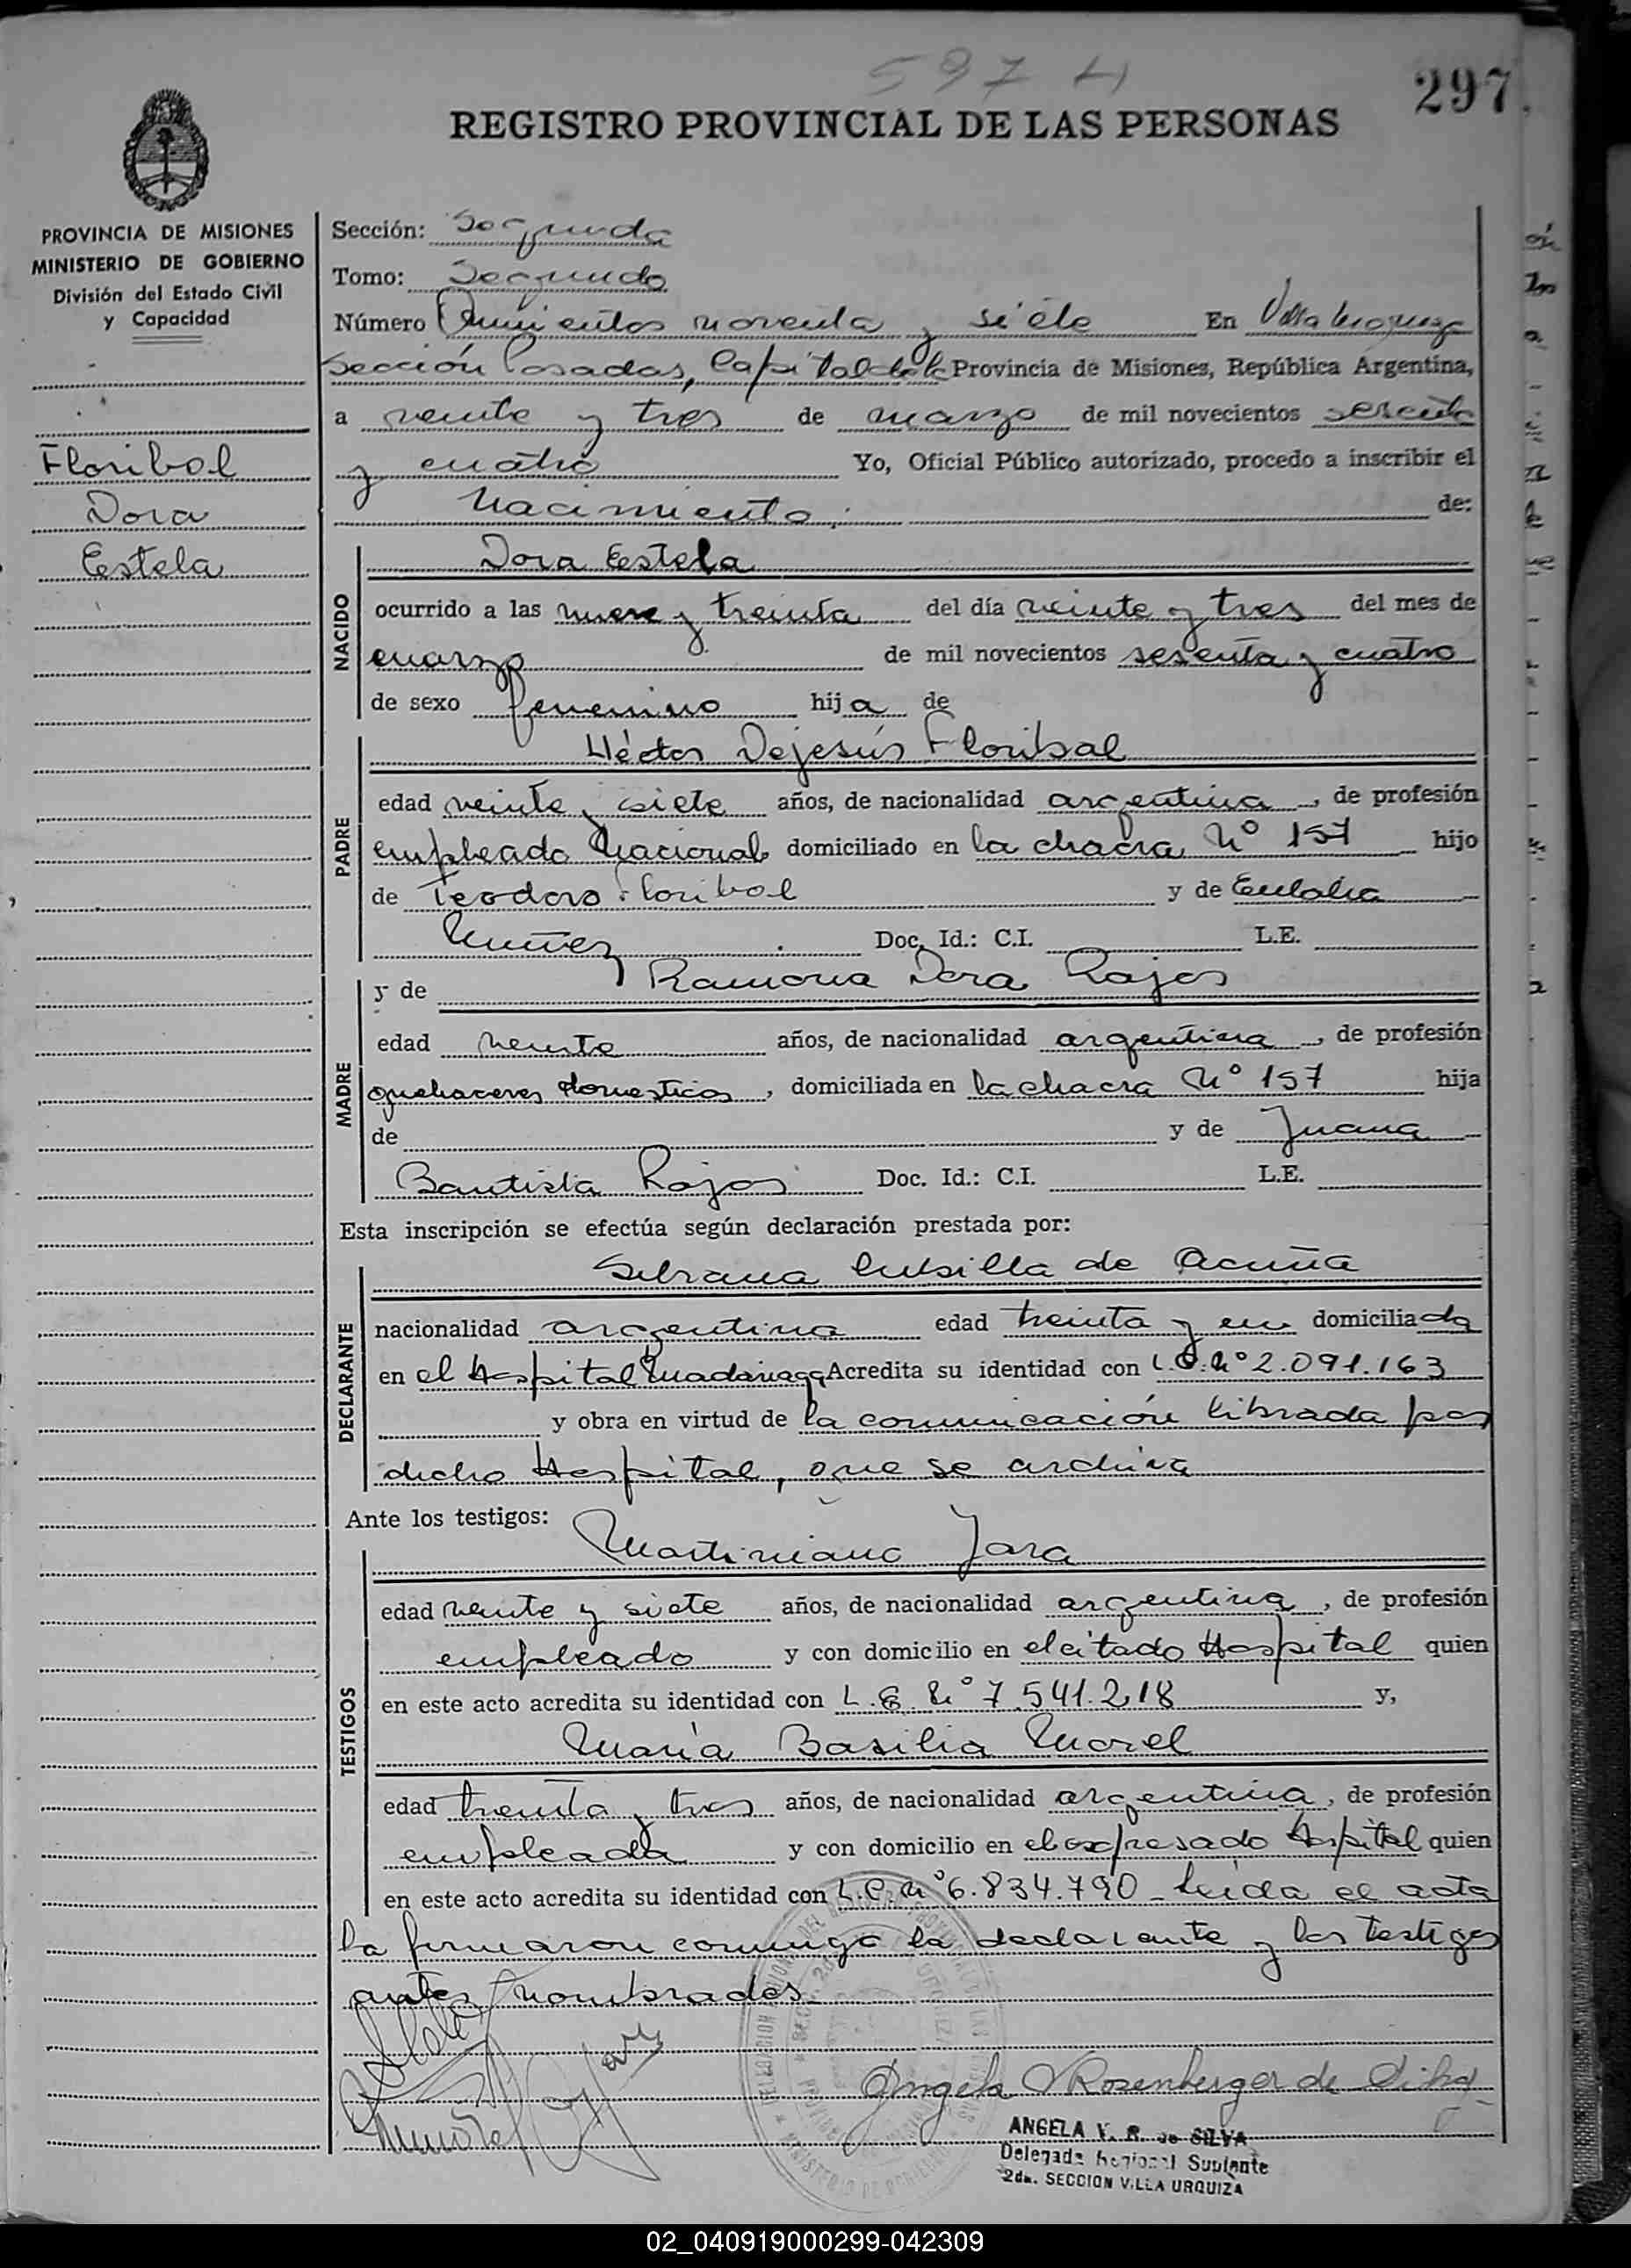 597 H
297
REGISTRO PROVINCIAL DE LAS PERSONAS
PROVINCIA DE MISIONES
MINISTERIO DE GOBIERNO
División del Estado Civil
y Capacidad
Floribal
Dora
Estela
Sección: Segunda
Tomo: Segundo
Número Quinientos noventa y siete En Villa Urquiza
Sección Posadas, Capital de la Provincia de Misiones, República Argentina,
a veinte y tres de marzo de mil novecientos sesenta
y cuatro Yo, Oficial Público autorizado, procedo a inscribir el
Nacimiento de:
NACIDO
Dora Estela
ocurrido a las nueve y treinta del día veinte y tres del mes de
marzo de mil novecientos sesenta y cuatro
de sexo femenino hija de
PADRE
Héctor Dejesús Floribal
edad veinte y siete años, de nacionalidad argentina, de profesión
empleado Nacional domiciliado en la chacra Nº 157 hijo
de Teodoro Floribal y de Eulalia
Nuñez Doc. Id.: C.I. L.E.
MADRE
y de Ramona Dora Rojas
edad veinte años, de nacionalidad argentina, de profesión
quehaceres domesticos, domiciliada en la chacra Nº 157 hija
de y de Juana
Bautista Rojas Doc. Id.: C.I. L.E.
Esta inscripción se efectúa según declaración prestada por:
DECLARANTE
de Acuña
nacionalidad argentina edad treinta y un domiciliada
en el Hospital Madariaga Acredita su identidad con L.C. Nº 2.091.163
y obra en virtud de la comunicación librada por
dicho Hospital, que se archiva
Ante los testigos:
TESTIGOS
Martiniano Jara
edad veinte y siete años, de nacionalidad argentina, de profesión
empleado y con domicilio en el citado Hospital quien
en este acto acredita su identidad con L.E Nº 7.541.218 y,
María Basilia Morel
edad treinta y tres años, de nacionalidad argentina, de profesión
empleada y con domicilio en el expresado Hospital quien
en este acto acredita su identidad con L.C. Nº 6.834.790 - Leida el acta
la firmaron conmigo la declarante y los testigos
antes nombrados.
Angela V Rosenberger de Silva
ANGELA V. R. de SILVA
Delegada Regional Suplente
2da. SECCION VILLA URQUIZA
02_040919000299-042309